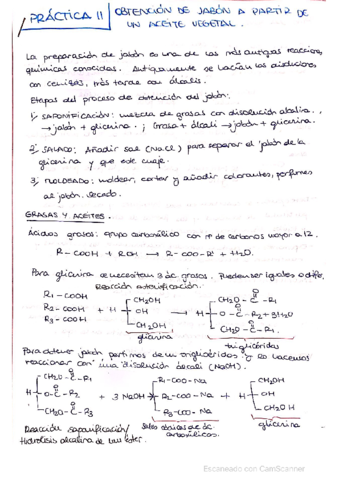 PRÁCTICA 11
OBTENCIÓN DE JABÓN A PARTIR DE
UN ACEITE VEGETAL.
La preparación de jabón es una de las más antiguas reacciones
químicas conocidas. Antiguamente se hacían las disoluciones
con cenizas, más tarde con álcalis.
Etapas del proceso de obtención del jabón:
1, SAPONIFICACIÓN: mezcla de grasas con disolución alcalina.
→ jabón + glicerina. ; Grasa + álcali → jabón + glicerina.
2, SALADO: Añadir sal (NaCl) para separar el jabón de la
glicerina y que este cuaje.
3, MOLDEADO: moldear, cortar y añadir colorantes, perfumes
al jabón, secado.
GRASAS Y ACEITES.
Ácidos grasos: grupo carboxílico con nº de carbonos mayor a 12.
R-COOH + ROH → R-COO-R' + H2O.
Para glicerina se necesitan 3 ác. grasos. Pueden ser iguales o difer.
Reacción esterificación:
R1-COOH CH2OH CH2O-C-R1
R2-COOH + H OH → H O-C-R2 + 3H2O
R3-COOH CH2OH CH2O-C-R3
glicerina triglicéridos
Para obtener jabón partimos de un triglicérido y lo hacemos
reaccionar con una disolución álcali (NaOH).
CH2O-C-R1 R1-COO-Na CH2OH
H O-C-R2 + 3 NaOH → R2-COO-Na + H OH
CH2O-C-R3 R3-COO-Na CH2OH
Reacción saponificación/ Sales básicas de ác. glicerina
Hidrólisis alcalina de un éster. carboxílicos.
Escaneado con CamScanner